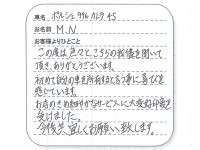 車名 ポルシェ 996 カレラ 4S
お名前 M.N
お客様よりひとこと
この度は色々とこちらの我儘を聞いて
頂き、ありがとうございます。
初めて自分の車を所有すると言う事に喜びを
感じています。
お店のきめ細やかなサービスに大変好印象を
受けました。
今後共、宜しくお願い致します。